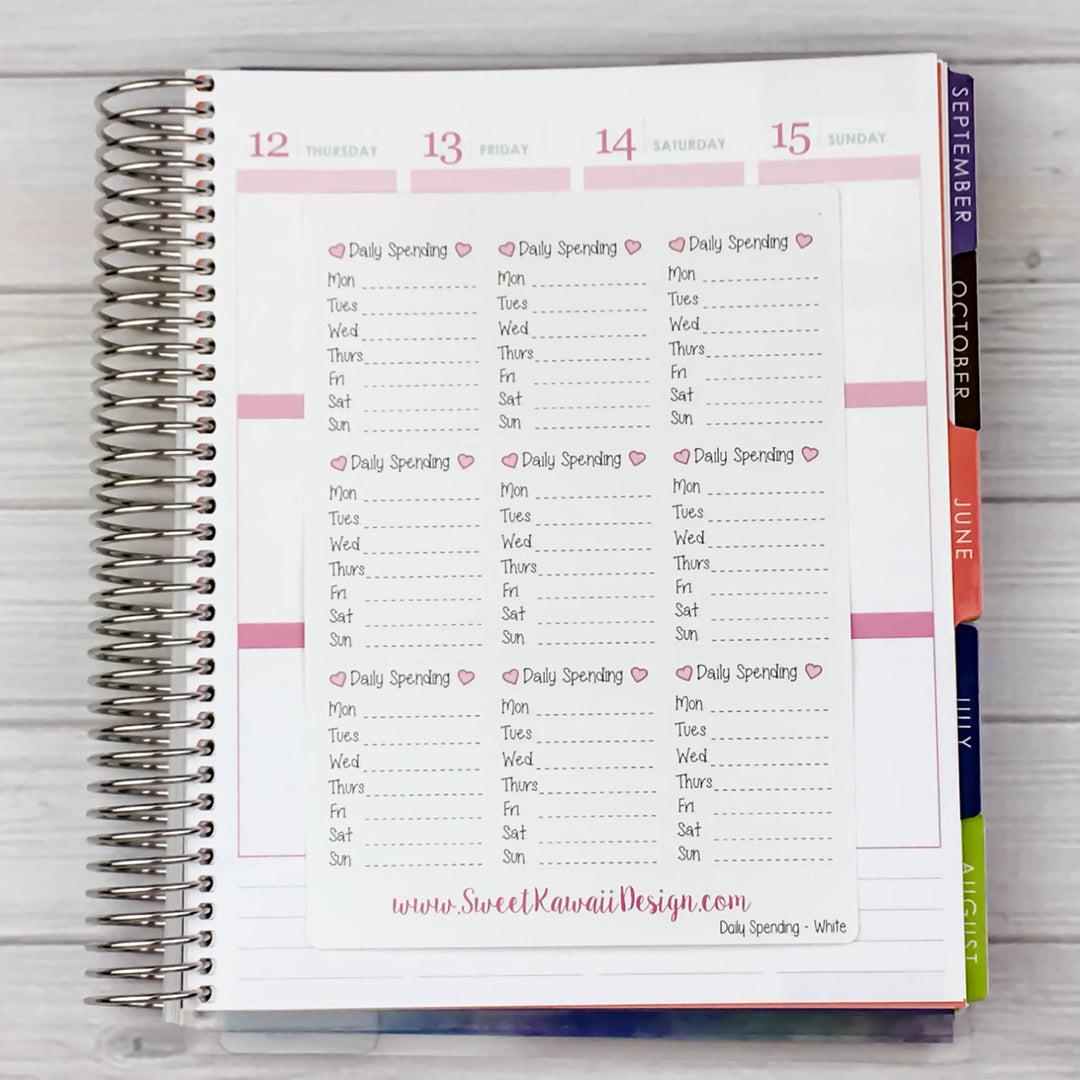 12 THURSDAY 13 FRIDAY 14 SATURDAY 15 SUNDAY
Daily Spending Daily Spending Daily Spending
Mon Mon Mon
Tues Tues Tues
Wed Wed Wed
Thurs Thurs Thurs
Fri Fri Fri
Sat Sat Sat
Sun Sun Sun
Daily Spending Daily Spending Daily Spending
Mon Mon Mon
Tues Tues Tues
Wed Wed Wed
Thurs Thurs Thurs
Fri Fri Fri
Sat Sat Sat
Sun Sun Sun
Daily Spending Daily Spending Daily Spending
Mon Mon Mon
Tues Tues Tues
Wed Wed Wed
Thurs Thurs Thurs
Fri Fri Fri
Sat Sat Sat
Sun Sun Sun
www.SweetKawaiiDesign.com
Daily Spending - White
SEPTEMBER
OCTOBER
JUNE
JULY
AUGUST